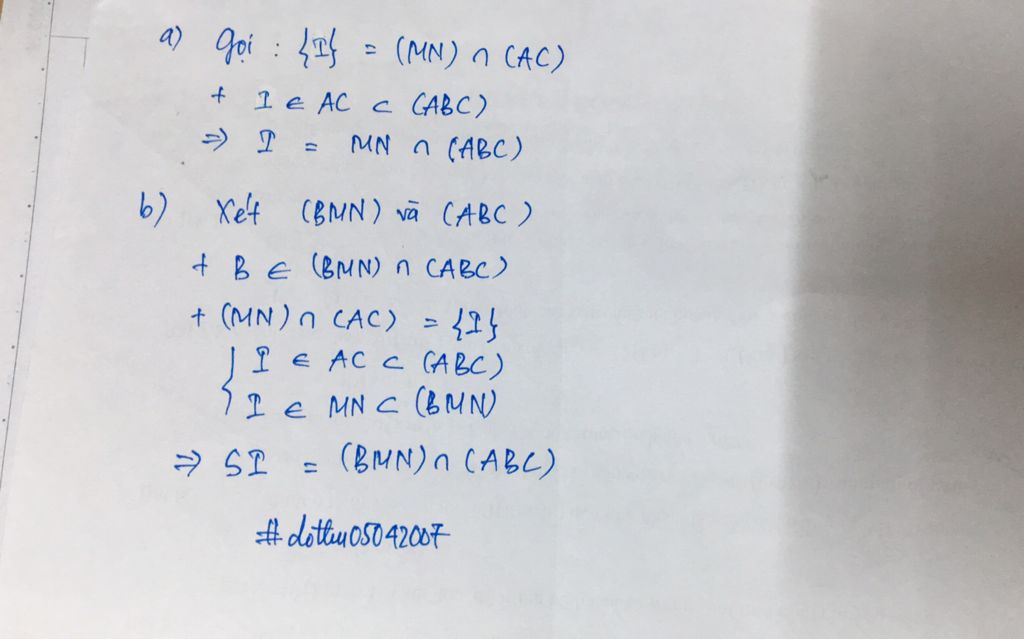 a) Gọi : {I} = (MN) ∩ (AC)
+ I ∈ AC ⊂ (ABC)
⇒ I = MN ∩ (ABC)
b) Xét (BMN) và (ABC)
+ B ∈ (BMN) ∩ (ABC)
+ (MN) ∩ (AC) = {I}
{ I ∈ AC ⊂ (ABC)
I ∈ MN ⊂ (BMN)
⇒ SI = (BMN) ∩ (ABC)